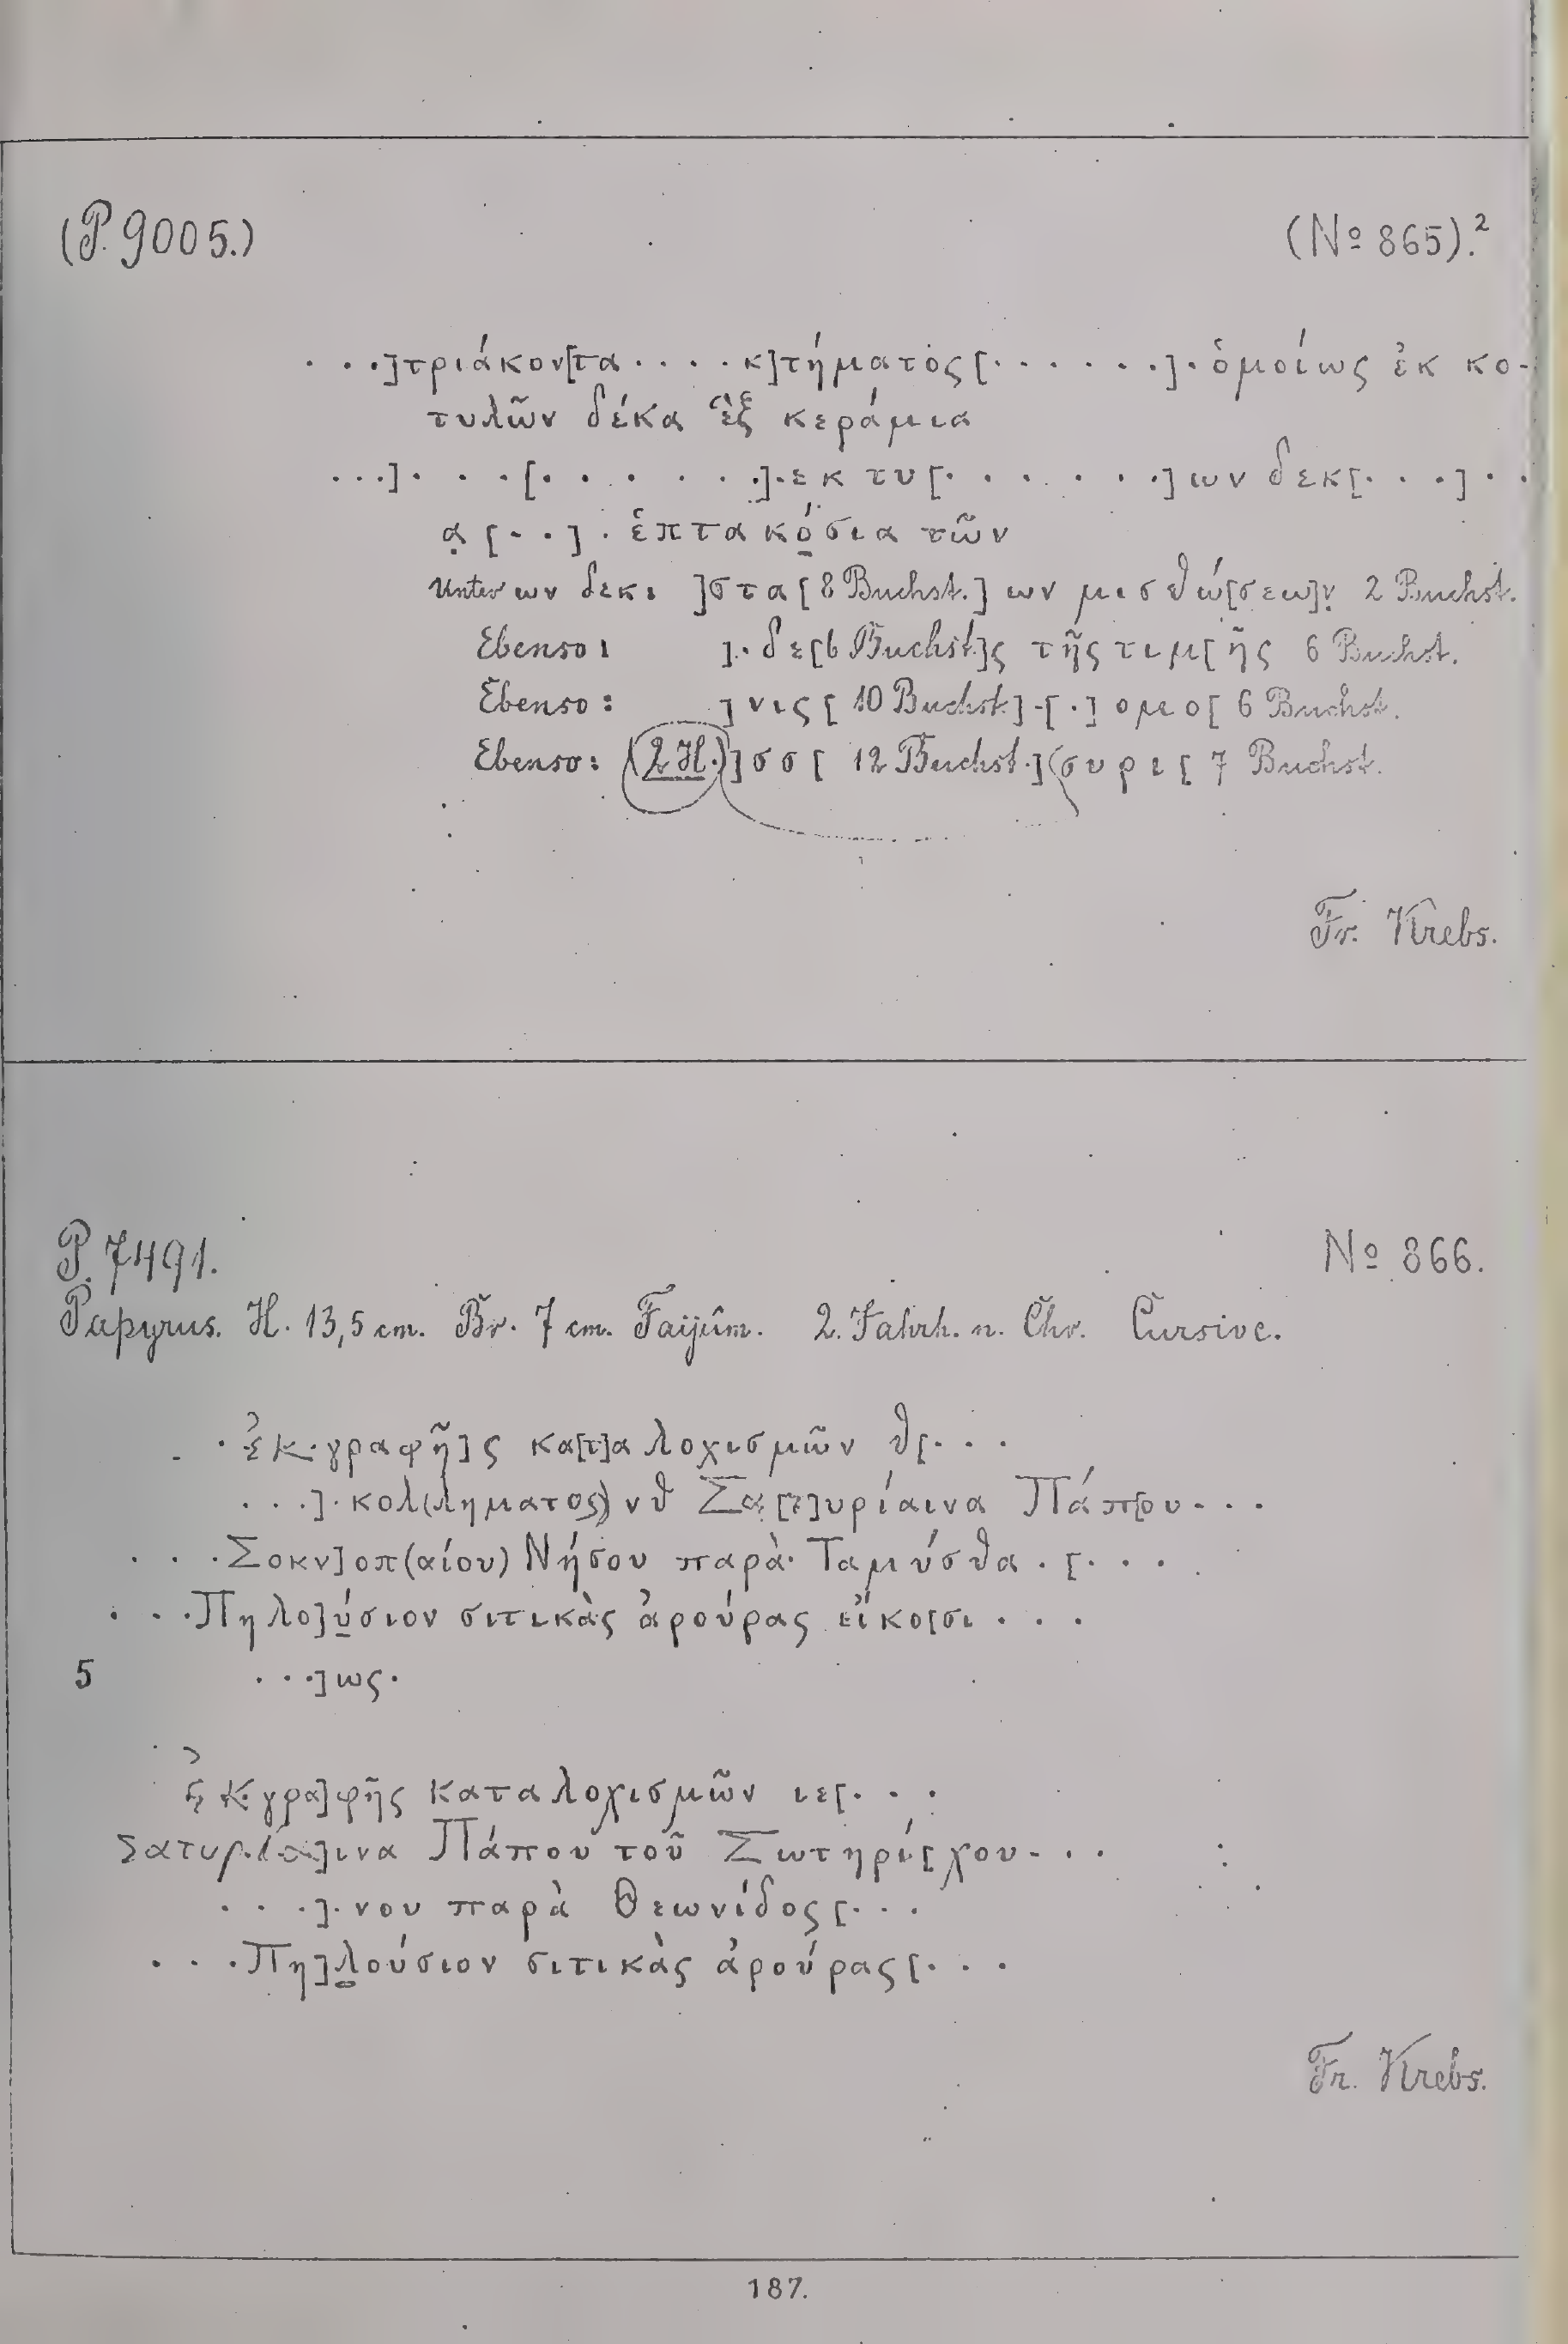 (P. 9005.) (No 865).²
. . .]τριάκον[τα . . . . κ]τήματὸς[. . . . . .]. ὁμοίως ἐκ κο-
τυλῶν δέκα ἓξ κεράμια
. . .]. . . [. . . . . . .].εκ τυ[. . . . . . .]ων δεκ[. . .] . .
α̣ [. .] . ἑπτακό̣σια τῶν
Unter ων δεκι ]στα[ 8 Buchst.] ων μισθώ[σεω]ν̣ 2 Buchst.
Ebenso: ]. δε[6 Buchst.]ς τῆς τιμ[ῆς 6 Buchst.
Ebenso: ]νις[ 10 Buchst.] -[.] ομο[ 6 Buchst.
Ebenso: (2 H.)]σσ[ 12 Buchst.](συρι[ 7 Buchst.
Fr. Krebs.
P. 7491. No 866.
Papyrus. H. 13,5 cm. Br. 7 cm. Faijûm. 2. Jahrh. n. Chr. Cursive.
. ἐκ.γραφῆ]ς κα[τ]αλοχισμῶν θ[. . .
. . .]. κολ(λήματος) νθ Σα[τ]υρίαινα Πάπ[ου . . .
. . . Σοκν]οπ(αίου) Νήσου παρὰ. Ταμύσθα . [. . .
. . . Πηλο]ύ̣σιον σιτικὰς ἀρούρας εἴκο[σι . . .
5 . . .]ως.
ἐκγρα]φῆς καταλοχισμῶν ιε[. . .
Σατυρία]ινα Πάπου τοῦ Σωτηρί[χου . . .
. . .]. νου παρὰ Θεωνίδος[. . .
. . . Πη]λ̣ούσιον σιτικὰς ἀρούρας[. . .
Fr. Krebs.
187.